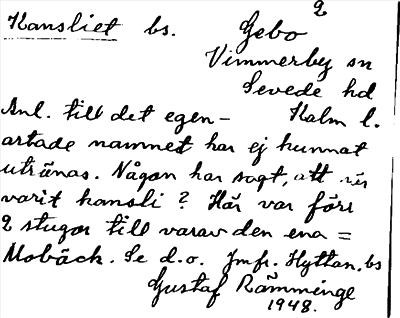 2
Kansliet bs. Gebo
Vimmerby sn
Sevede hd
Anl. till det egen- Kalm l.
artade namnet har ej kunnat
utrönas. Någon har sagt, att här
varit kansli? Här var förr
2 stugor till varav den ena =
Mobäck. Se d.o. Jmfr. Hyttan, bs
Gustaf Rämminge
1948.